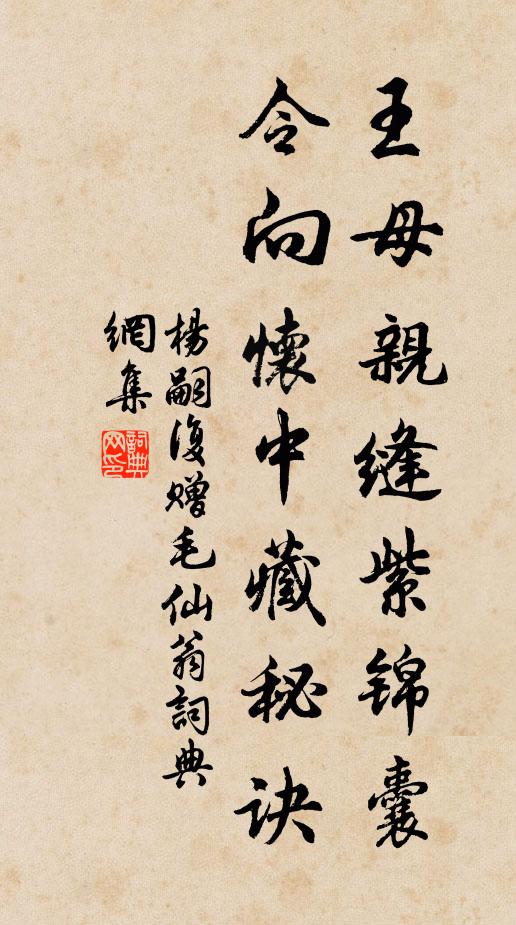 王母親縫紫锦囊
令向懷中藏秘诀
楊嗣復贈毛仙翁詞典
網集
詞典網印